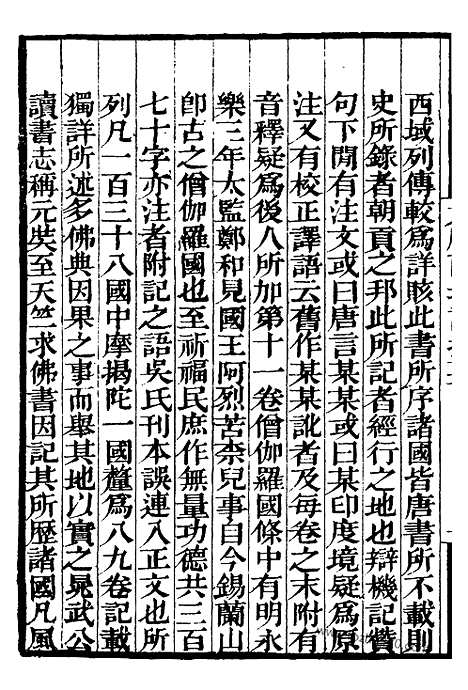 西域列傳較爲詳賅此書所序諸國皆唐書所不載則
史所錄者朝貢之邦此所記者經行之地也辯機記贊
句下閒有注文或曰唐言某某或曰某印度境疑爲原
注又有校正譯語云舊作某某訛者及每卷之末附有
音釋疑爲後人所加第十一卷僧伽羅國條中有明永
樂三年太監鄭和見國王阿烈苦柰兒事自今錫蘭山
卽古之僧伽羅國也至祈福民庶作無量功德共三百
七十字亦注者附記之語吳氏刊本誤連入正文也所
列凡一百三十八國中摩揭陀一國釐爲八九卷記載
獨詳所述多佛典因果之事而舉其地以實之晁武公
讀書志稱元奘至天竺求佛書因記其所歷諸國凡風